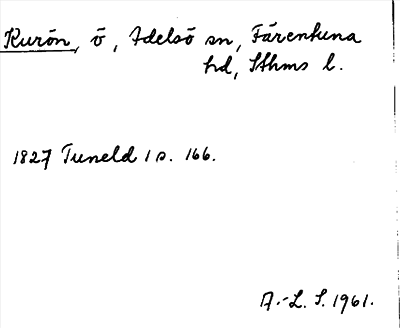 Kurön, ö, Adelsö sn, Färentuna
hd, Sthms l.
1827 Tuneld 1 s. 166.
A.-L. S. 1961.